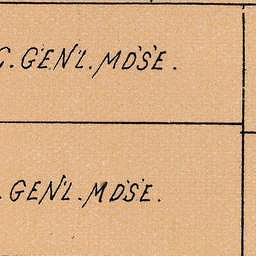 C. GEN'L. MD'S'E.
. GEN'L. MD'S'E.